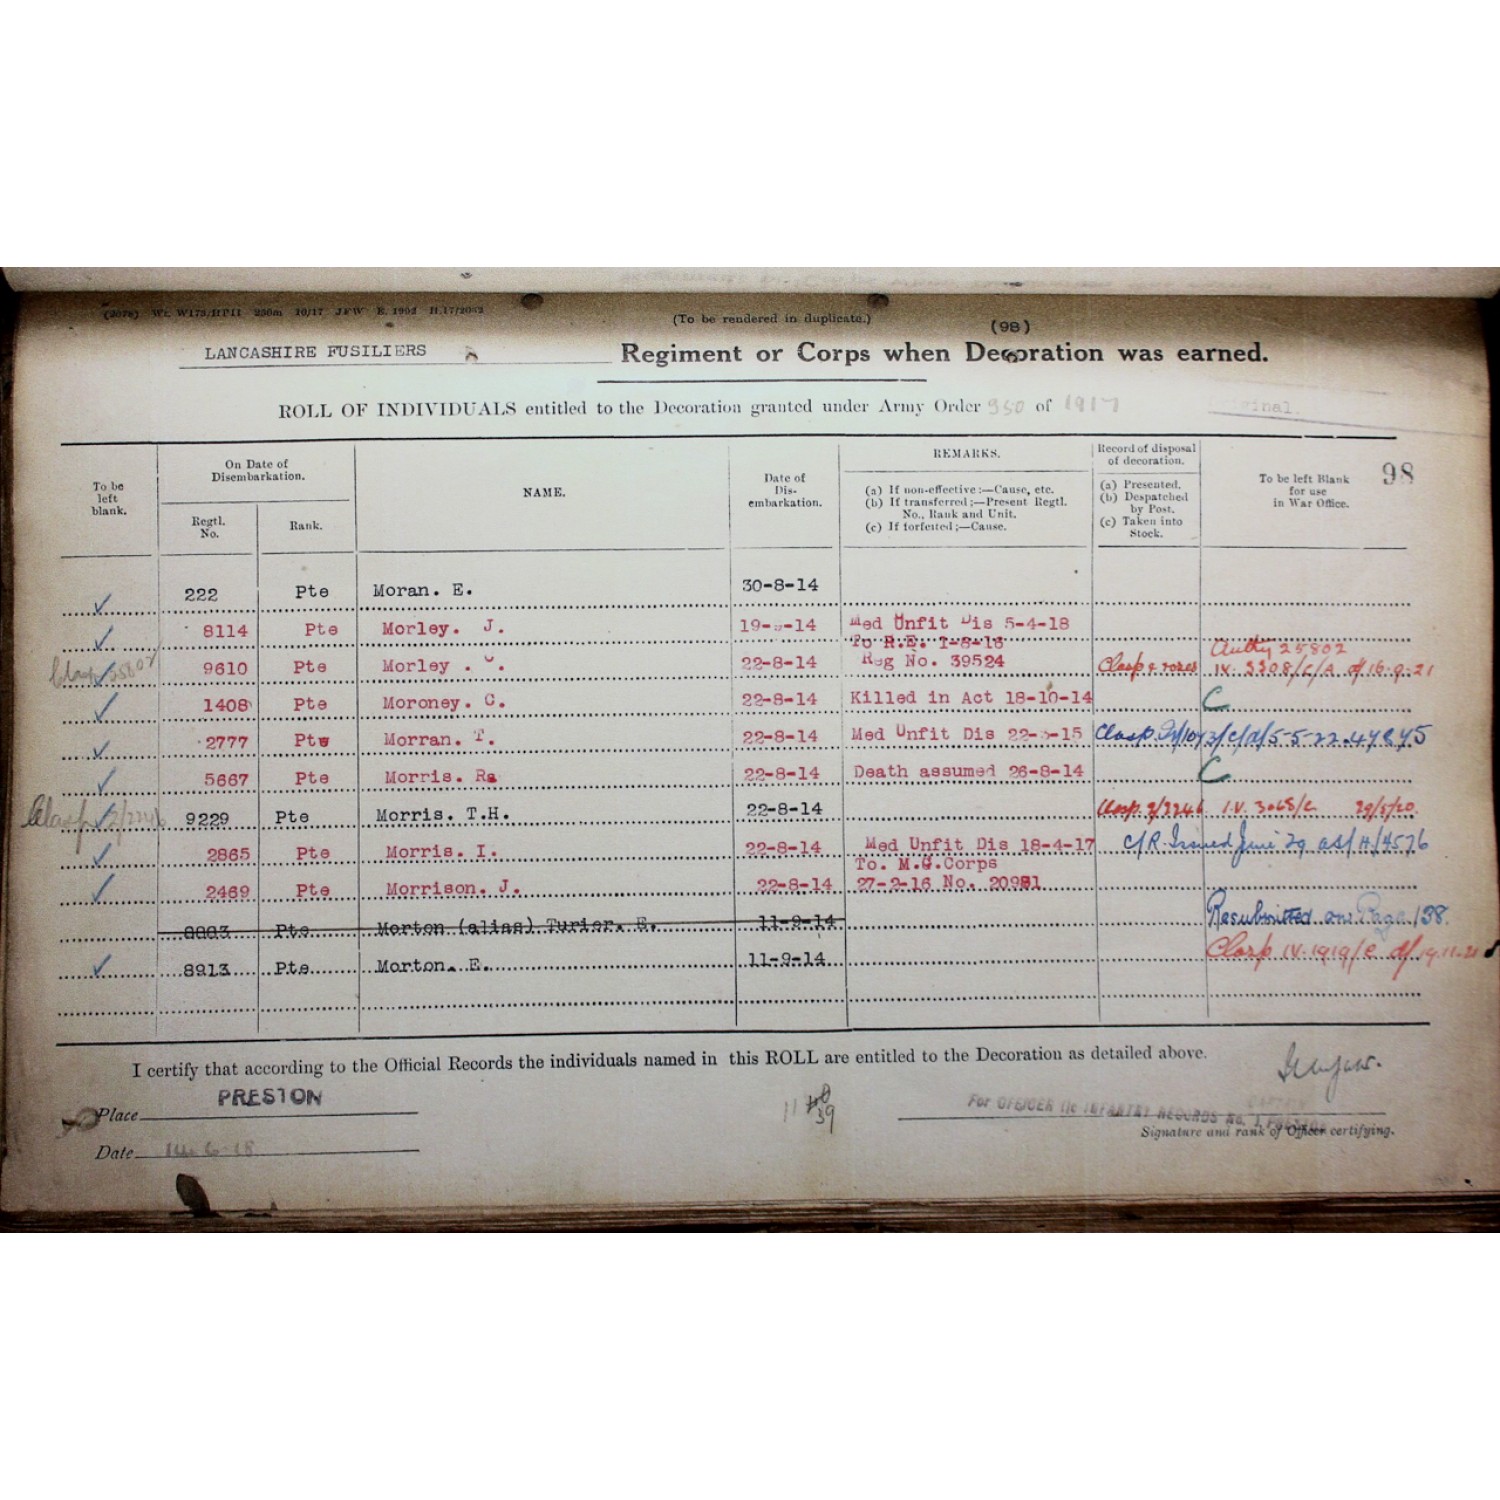 (2078) Wt. W173/HP11 250m 10/17 JFW E. 1902 H.17/2082
(To be rendered in duplicate.)
(98)
LANCASHIRE FUSILIERS Regiment or Corps when Decoration was earned.
ROLL OF INDIVIDUALS entitled to the Decoration granted under Army Order 350 of 1917
98
To be left blank.
On Date of Disembarkation.
Regtl. No.
Rank.
NAME.
Date of Dis-embarkation.
REMARKS.
(a) If non-effective :—Cause, etc.
(b) If transferred ;—Present Regtl. No., Rank and Unit.
(c) If forfeited ;—Cause.
Record of disposal of decoration.
(a) Presented.
(b) Despatched by Post.
(c) Taken into Stock.
To be left Blank for use in War Office.
222 Pte Moran. E. 30-8-14
8114 Pte Morley. J. 19-14 Med Unfit Dis 5-4-18
To R.E. 1-8-16
Clasp 9610 Pte Morley. 22-8-14 Reg No. 39524 Clasp Authy 25802
IV. 3308/C/A df 16.9.21
1408 Pte Moroney. C. 22-8-14 Killed in Act 18-10-14 C
2777 Pte Morran. T. 22-8-14 Med Unfit Dis 22-15 Clasp 5-5-22
5667 Pte Morris. R. 22-8-14 Death assumed 26-8-14 C
Clasp 2/2246 9229 Pte Morris. T.H. 22-8-14 Clasp 2/2246 I.V. 3068/C 29/5/20.
2865 Pte Morris. I. 22-8-14 Med Unfit Dis 18-4-17 C/R Issued June 29 H/4576
To. M.G.Corps
2469 Pte Morrison. J. 22-8-14 27-2-16 No. 20981
8883 Pte Morton (alias) Turier. E. 11-9-14 Resubmitted on Page 138.
8913 Pte Morton. E. 11-9-14 Clasp IV.1919/C df 19.11.21
I certify that according to the Official Records the individuals named in this ROLL are entitled to the Decoration as detailed above.
Place PRESTON
Date 14-6-18
11
39
For OFFICER i/c INFANTRY RECORDS No. 1 PRESTON
Signature and rank of Officer certifying.